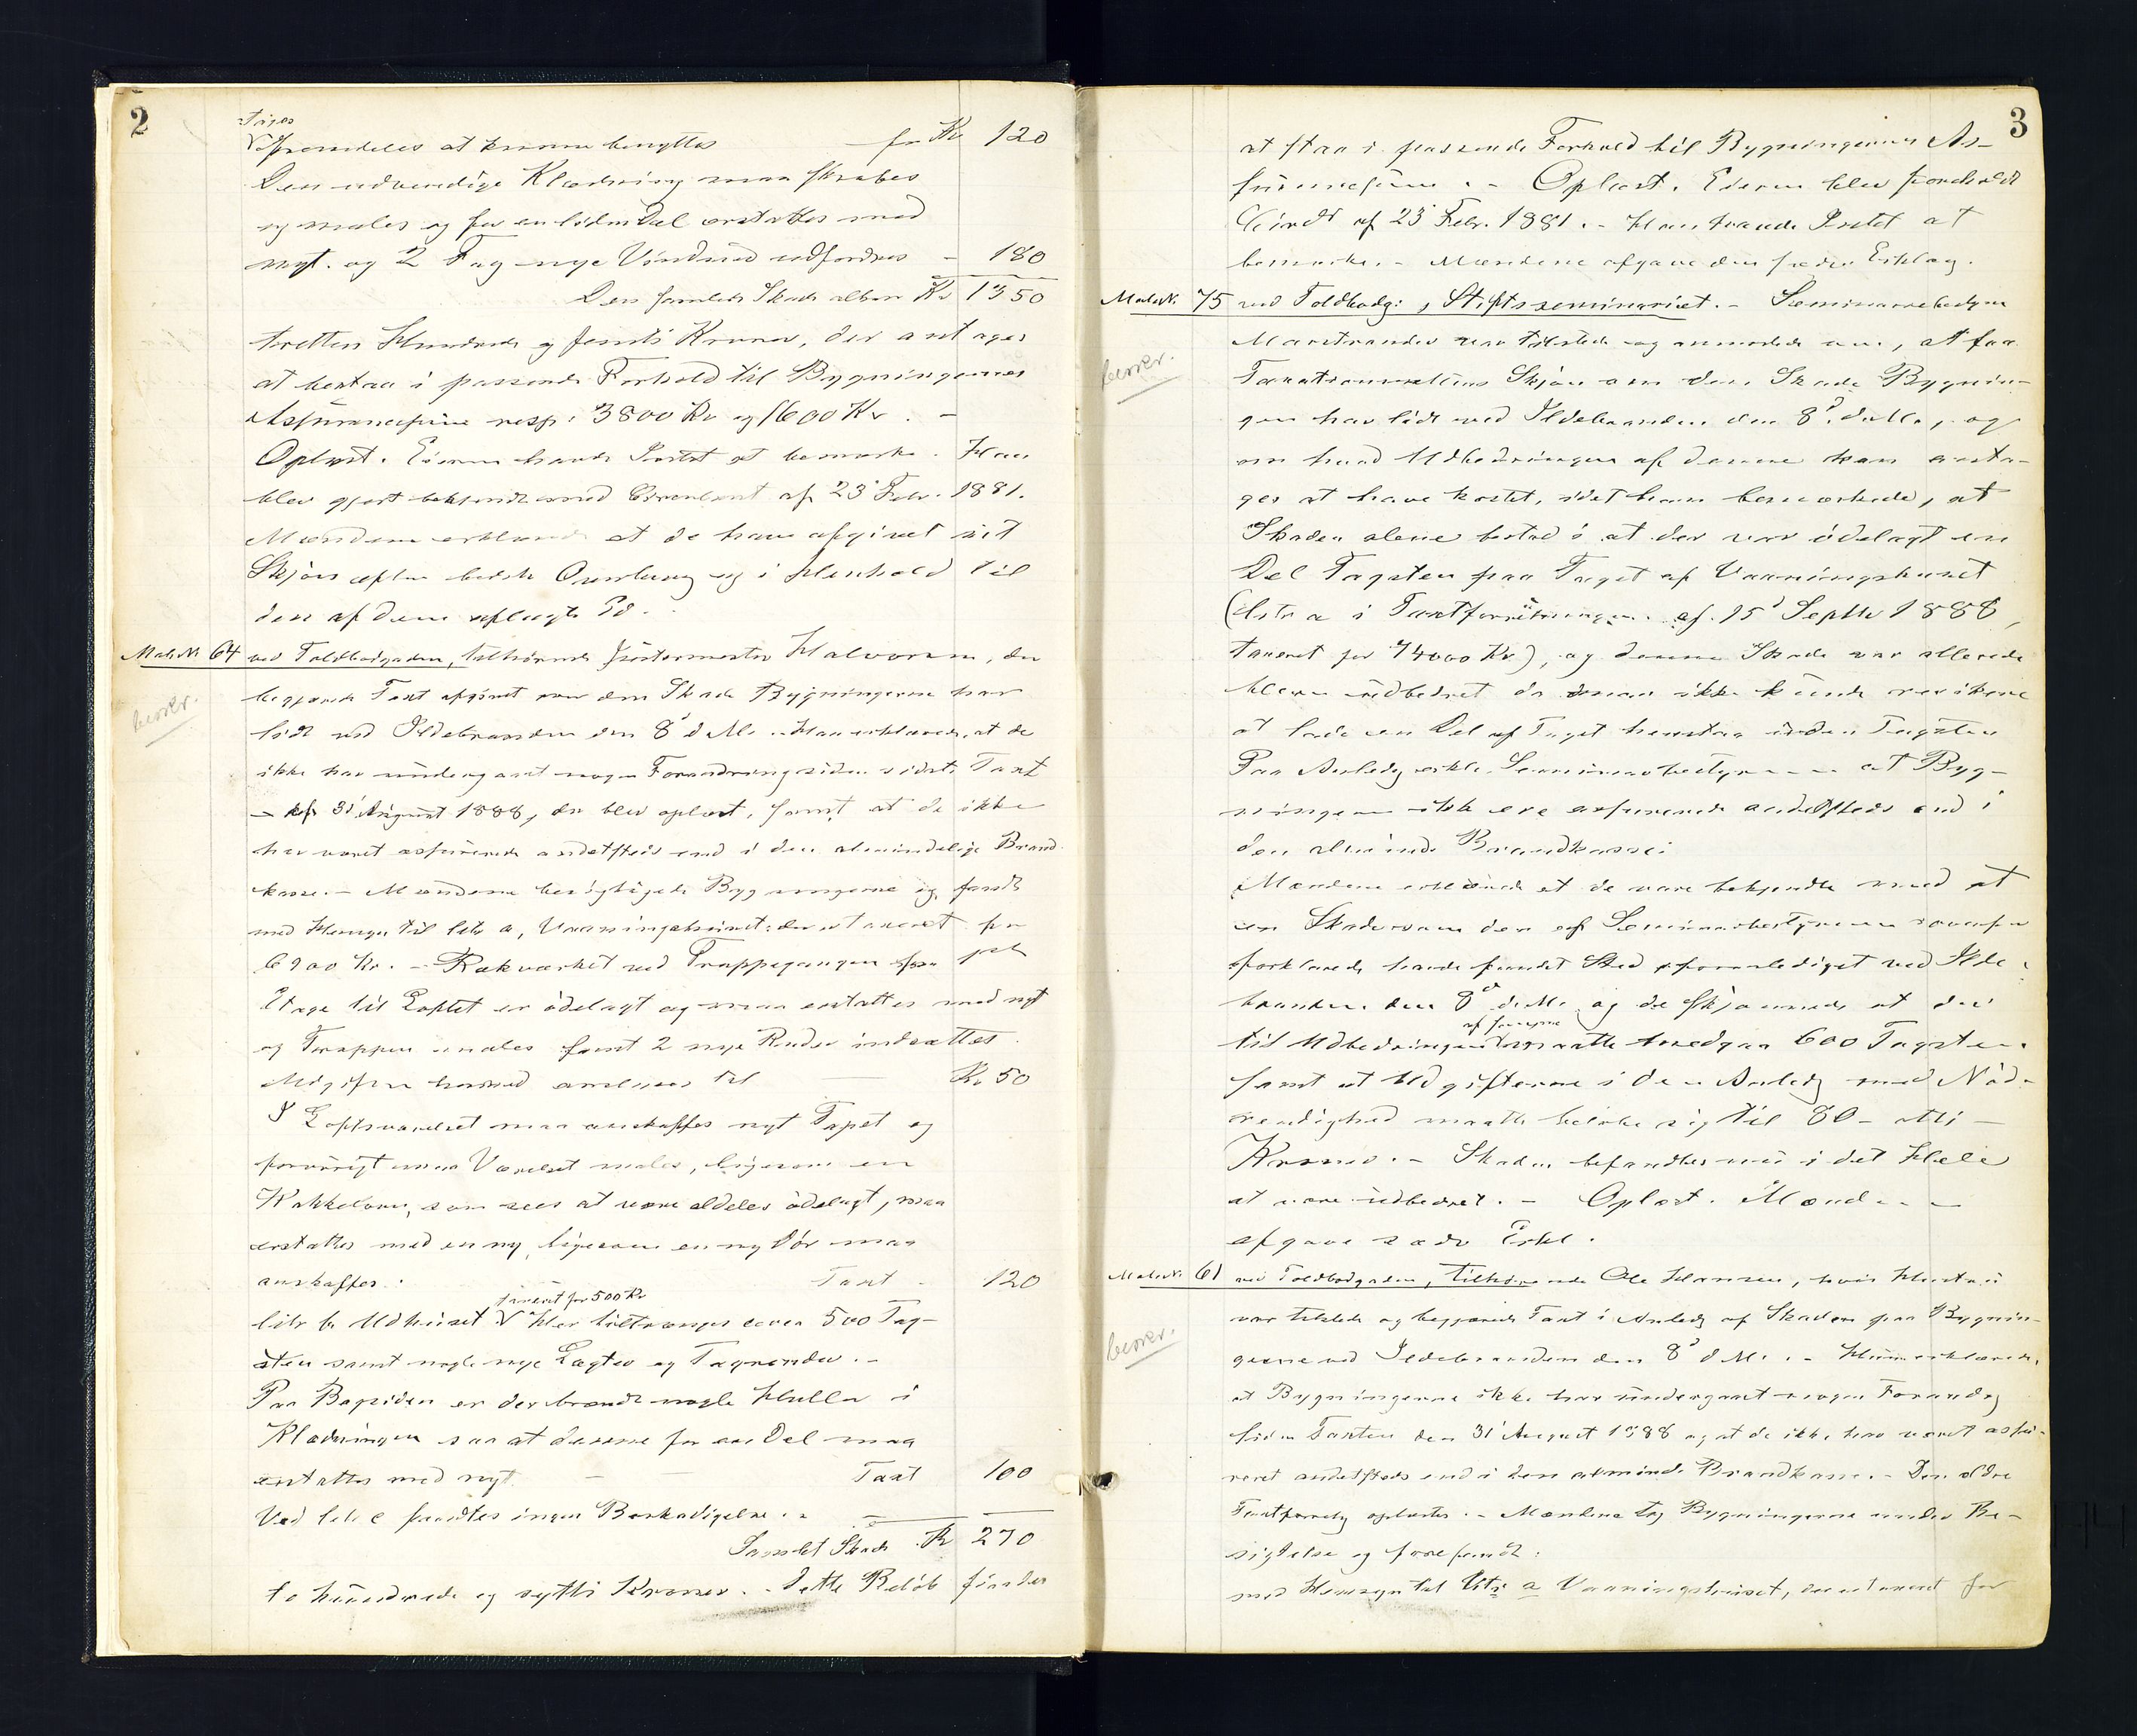 2
siges
fremdeles at kunne benyttes — for Kr 120
Den udvendige Klædning maa skrabes
og males og for en liden Del erstattes med
nyt. og 2 Fag nye Vinduer udfordres - 180
Den samlede Skade altsaa Kr 1350
tretten Hundrede og femti Kroner, der antages
at bestaa i passende Forhold til Bygningernes
Assurancesum resp: 3800 Kr og 1600 Kr. -
Oplæst. Eieren havde Intet at bemærke. Han
blev gjort bekjendt med Circulært af 23 Febr. 1881.
Mændene erklærede at de have afgivet sit
Skjøn efter bedste Overbevisning og i Henhold til
den af dem aflagte Ed.
Matr. N. 64 ved Toldbodgaden, tilhørende Halvorsen, der
besvær.
begjærede Taxt afgivet over den Skade Bygningerne har
lidt ved Ildebranden den 8de d. M. - Han erklærede, at de
ikke har undergaaet nogen Forandring siden sidste Taxt
- af 31 August 1888, der blev oplæst, samt at de ikke
har været assurerede andetsteds end i den almindelige Brand
kasse. - Mændene besigtigede Bygningerne og fandt
med Hensyn til litr a, Vaaningshuset: der er taxeret for
6900 Kr. - Rækværket ved Trappegangen fra 1ste
Etage til Loftet er ødelagt og maa erstattes med nyt
og Trappen males samt 2 nye Ruder indsættes.
Udgiften herved ansees til — Kr 50
I Loftsværelset maa anskaffes nyt Tapet og
forøvrigt maa Værelset males, ligesom en
Kakkelovn, som sees at være aldeles ødelagt, maa
erstattes med en ny, ligesom en ny Dør maa
anskaffes. Taxt - 120
taxeret for 500 Kr
litr b. Udhuset V Her tiltrænges circa 500 Tag-
sten samt nogle nye Lægter og Tagrender. -
Paa Bagsiden er der brændt nogle Huller i
Klædningen saa at denne for en Del maa
erstattes med nyt. - Taxt 100
Ved litr c fandtes ingen Beskadigelse. -
Samlet Skade Kr 270
to hundrede og sytti Kroner. - Dette Beløb findes
3
at staa i passende Forhold til Bygningernes As-
surancesum. - Oplæst. Eieren blev foreholdt
Circ. af 23 Febr. 1881. - Han havde Intet at
bemærke. - Mændene afgave den sædv. Erklæg.
Matr. N. 75 ved Toldbodg:, Stiftsseminariet. - Seminariebestyrer
besvær.
Marstrander var tilstede og anmodede om, at faa
Taxationsmændenes Skjøn om den Skade Bygnin-
gen har lidt ved Ildebranden den 8de d. M., og
om hvad Udbedringen af denne kan anta-
ges at have kostet, idet han bemærkede, at
Skaden alene bestod i at der var ødelagt en
Del Tagsten paa Taget af Vaaningshuset
(litr a i Taxtforretningen af 15d Septbr 1888,
taxeret for 74000 Kr), og denne Skade var allerede
bleven udbedret da man ikke kunde resikere
at lade en Del af Taget henstaa uden Tagsten
Paa Anledg erkl. Seminarbestyreren at Byg-
ningerne ikke ere assurerede andetsteds end i
den almindl. Brandkasse.
Mændene erklærede at de vare bekjendte med at
en Skade som den af Seminarbestyreren ovenfor
forklarede havde fundet Sted foranlediget ved Ilde-
branden den 8de d. M. og de skjønnede at der
af samme
til Udbedringen maatte medgaa 600 Tagsten
samt at Udgifterne i den Anledg med Nød-
vendighed maatte beløbe sig til 80 - otti -
Kroner. - Skaden befandtes nu i det Hele
at være udbedret. - Oplæst. Mænd...
afgave sædv Erkl.
Matr. N. 61 ved Toldbodgaden, tilhørende Ole Hansen, hvis Hustru
besvær.
var tilstede og begjærede Taxt i Anledg af Skaden paa Bygnin-
gerne ved Ildebranden den 8de d. M. - Hun erklærede,
at Bygningerne ikke har undergaaet nogen Forandrg
siden Taxten den 31 August 1888 og at de ikke har været assu-
reret andetsteds end i den almindl. Brandkasse. - Den ældre
Taxtforretg oplæstes. - Mændene tog Bygningerne under Be-
sigtelse og forefandt:
med Hensyn til litr. a Vaaningshuset, der er taxeret for